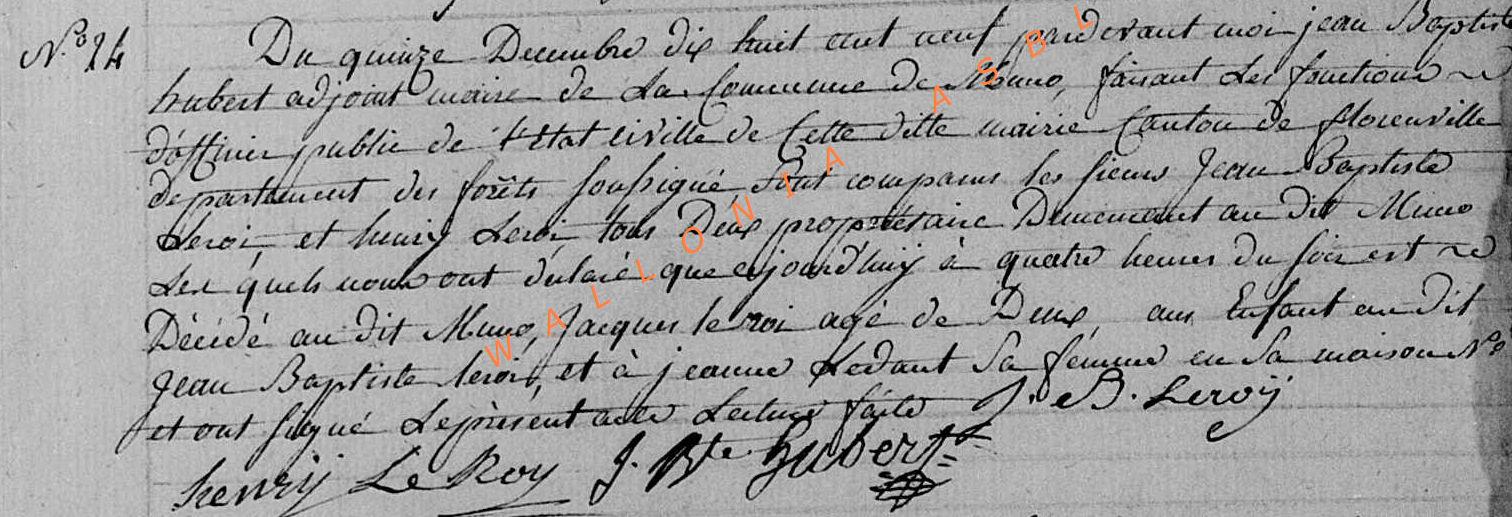 N.º 24
Du quinze Decembre dix huit cent neuf pardevant moi jean Baptiste
hubert adjoint maire de La Commune de Muno, faisant Les fonctions
d'officier public de l'Etat civille de Cette ditte mairie Canton de florenville
departement des forêts soussigné, sont comparus les sieurs Jean Baptiste
Leroi, et henry Leroi tous Deux propriétaire Demeurant au dit Muno
Les quels nous ont déclaré que ajourd'huij à quatre heures du soir est
Décédé au dit Muno, Jacques le roi agé de Deux ans Enfant au dit
Jean Baptiste leroi, et à jeanne Ledant Sa femme en Sa maison Nº
et ont signé Le présent acte Lecture faite J. B. Leroÿ
henrij Le Roy J. Bte hubert
WALLONIA ASBL